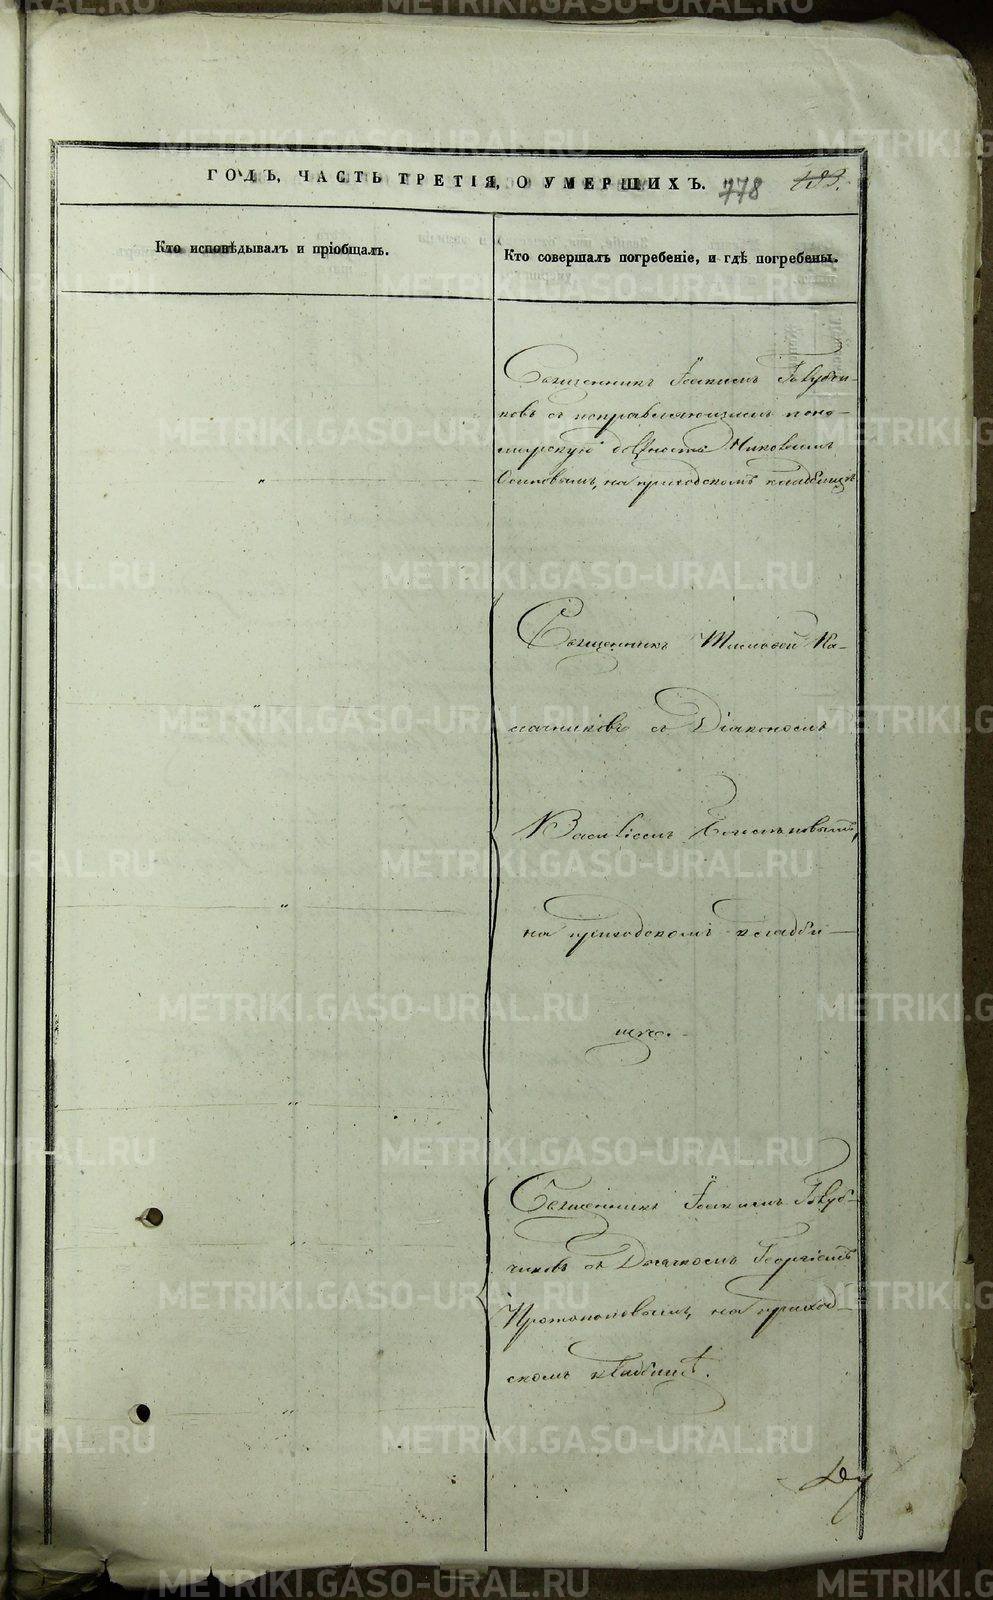 ГОДЪ, ЧАСТЬ ТРЕТІЯ, О УМЕРШИХЪ. 778
Кто исповѣдывалъ и пріобщалъ.
Кто совершалъ погребеніе, и гдѣ погребены.
Священникъ Іоакимъ
ковъ съ исправляющимъ поно-
марскую должность
Осиповымъ, на приходскомъ кладбищѣ
Священникъ Тимофей Ка-
лачниковъ съ Діакономъ
Василіемъ
на приходскомъ кладби-
щѣ.
Священникъ Іоакимъ
чиковъ съ Дьячкомъ Георгіемъ
Протопоповымъ, на приход-
скомъ кладбищѣ.
METRIKI.GASO-URAL.RU